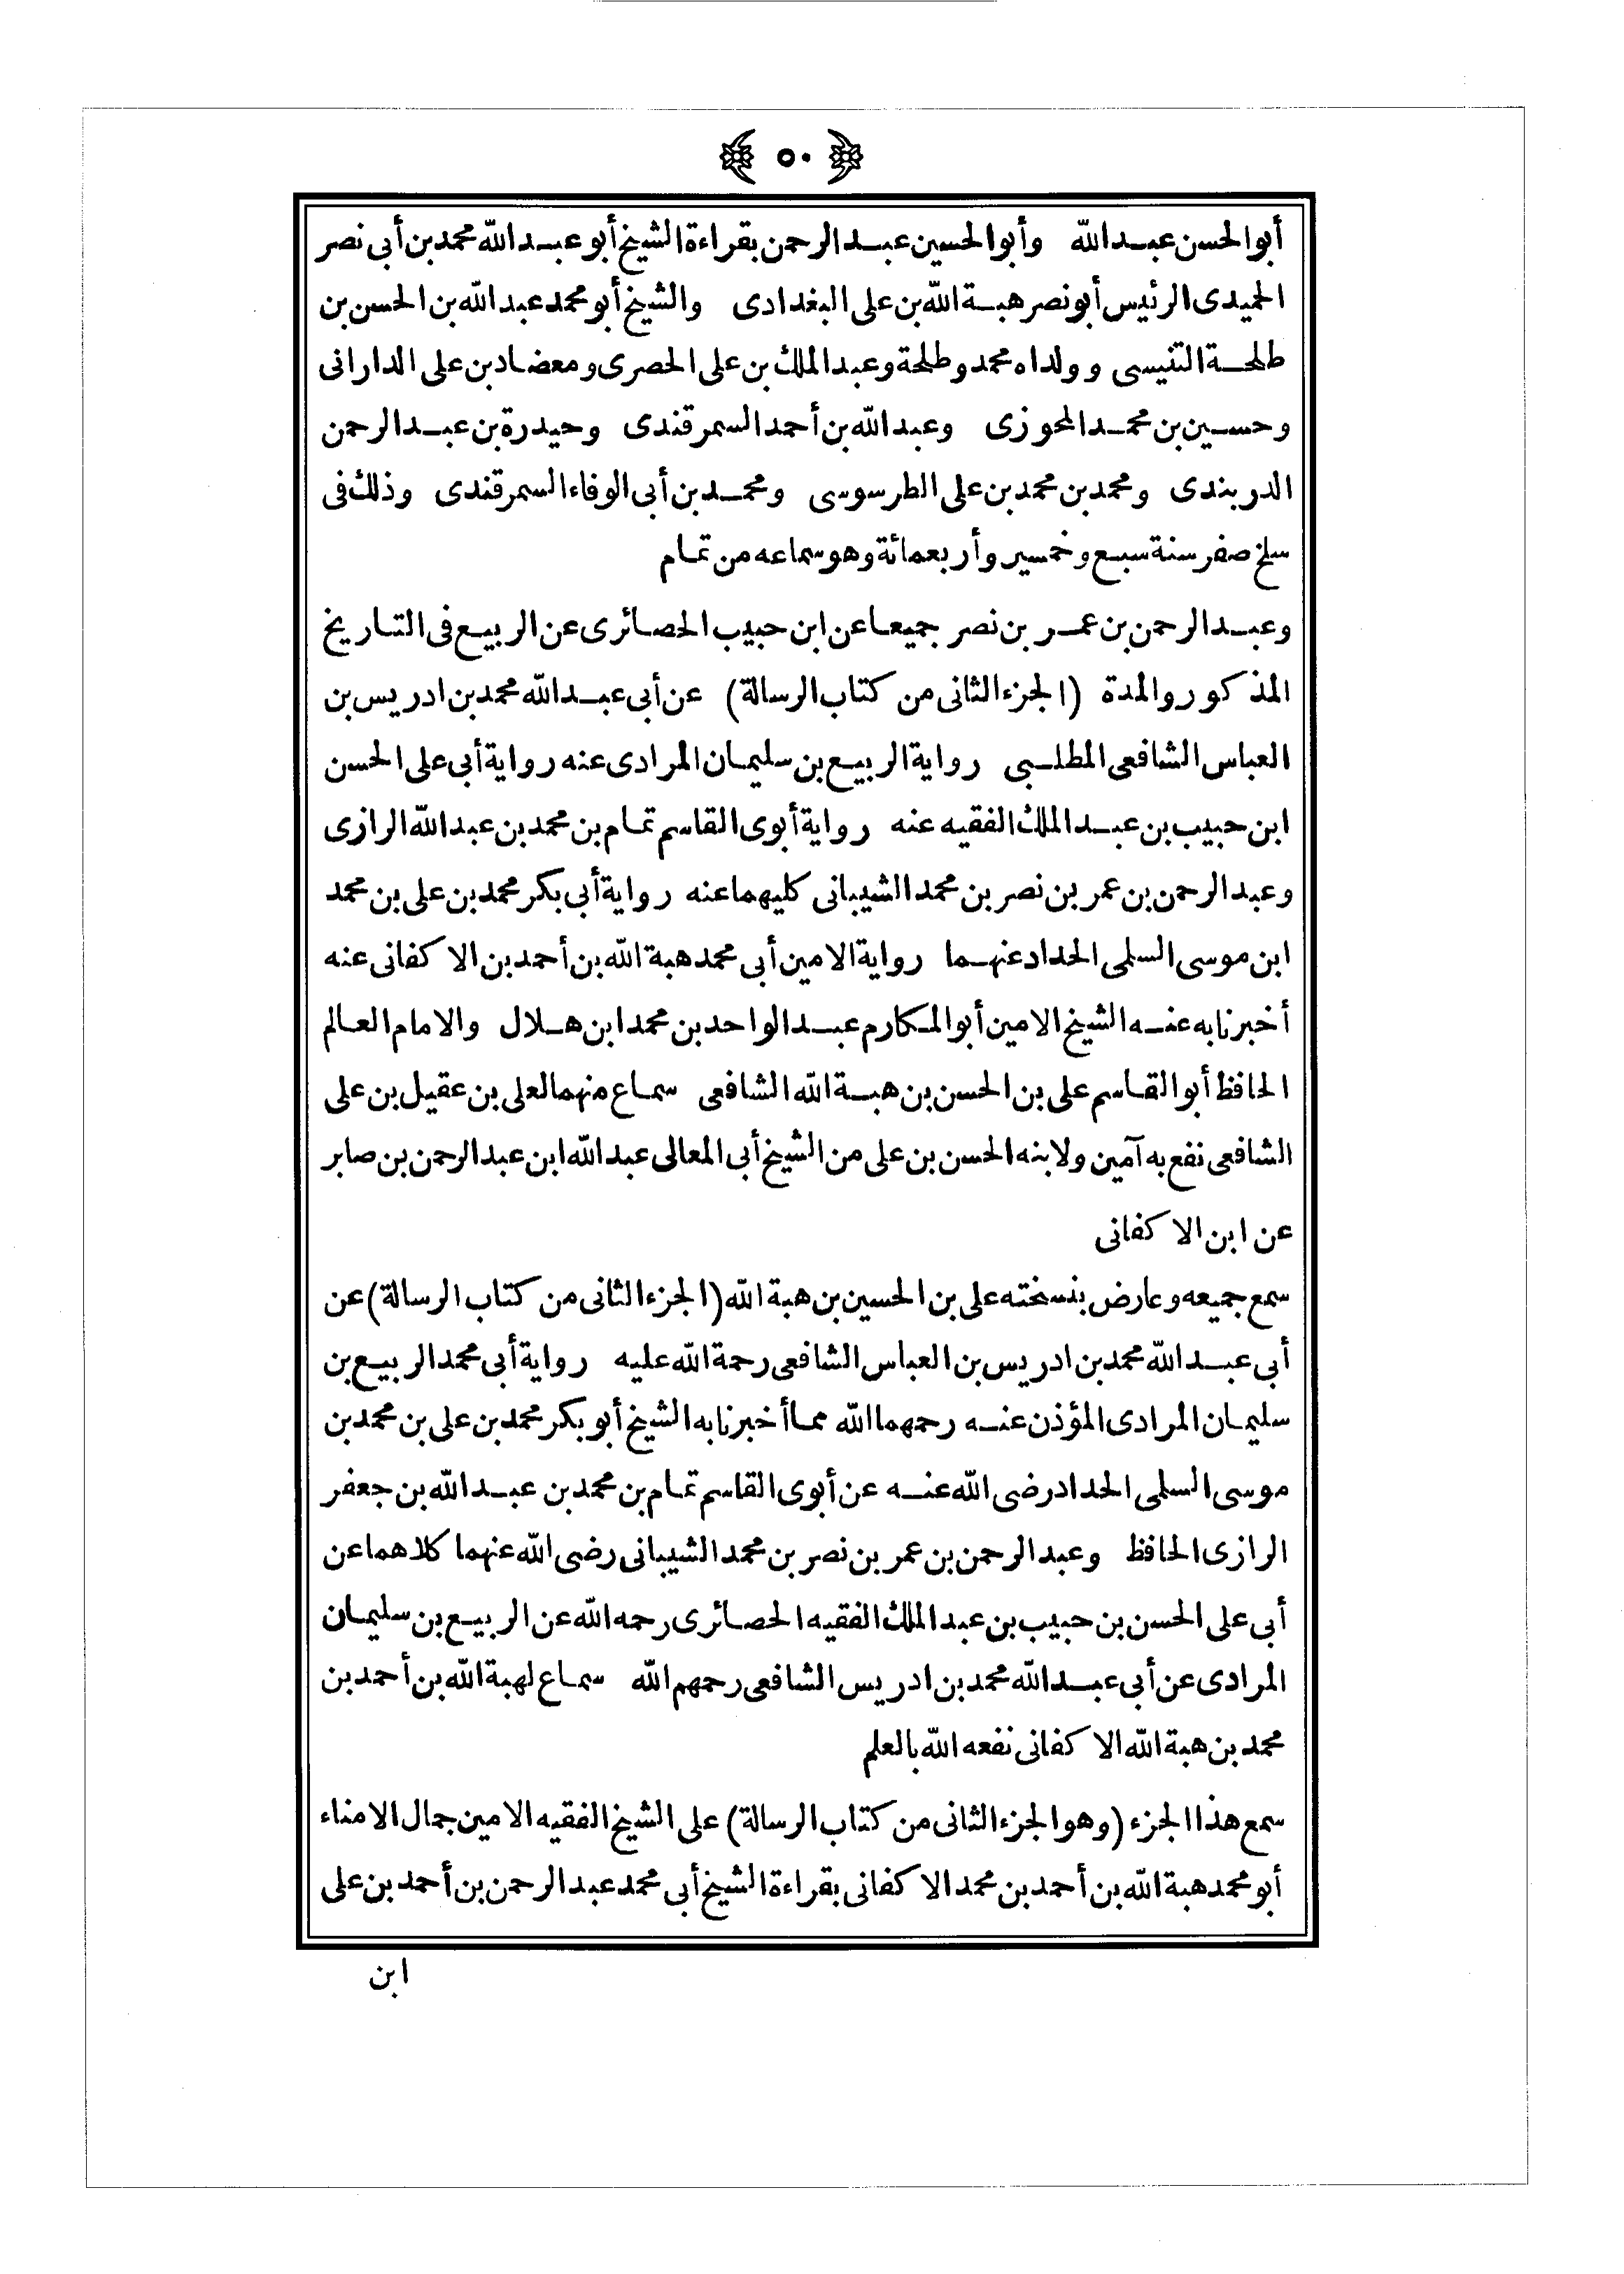 ﴿ ٥٠ ﴾
أبو الحسن عبد الله وأبو الحسين عبد الرحمن بقراءة الشيخ أبو عبد الله محمد بن أبى نصر
الحميدى الرئيس أبو نصر هبة الله بن على البغدادى والشيخ أبو محمد عبد الله بن الحسن بن
طلحة التنيسى وولداه محمد وطلحة وعبد الملك بن على الحصرى ومعضاد بن على الدارانى
وحسين بن محمد الحوزى وعبد الله بن أحمد السمرقندى وحيدرة بن عبد الرحمن
الدربندى ومحمد بن محمد بن على الطرسوسى ومحمد بن أبى الوفاء السمرقندى وذلك فى
سلخ صفر سنة سبع وخمسير وأربعمائة وهو سماعه من تمام
وعبد الرحمن بن عمر بن نصر جميعا عن ابن حبيب الحصائرى عن الربيع فى التاريخ
المذكور والمدة (الجزء الثانى من كتاب الرسالة) عن أبى عبد الله محمد بن ادريس بن
العباس الشافعى المطلبى رواية الربيع بن سليمان المرادى عنه رواية أبى على الحسن
ابن حبيب بن عبد الملك الفقيه عنه رواية أبوى القاسم تمام بن محمد بن عبد الله الرازى
وعبد الرحمن بن عمر بن نصر بن محمد الشيبانى كليهما عنه رواية أبى بكر محمد بن على بن محمد
ابن موسى السلمى الحداد عنهما رواية الامين أبى محمد هبة الله بن أحمد بن الاكفانى عنه
أخبرنا به عنه الشيخ الامين أبو المكارم عبد الواحد بن محمد ابن هلال والامام العالم
الحافظ أبو القاسم على بن الحسن بن هبة الله الشافعى سماع منهما لعلى بن عقيل بن على
الشافعى نفع به آمين ولابنه الحسن بن على من الشيخ أبى المعالى عبد الله ابن عبد الرحمن بن صابر
عن ابن الاكفانى
سمع جميعه وعارض بنسخته على بن الحسين بن هبة الله (الجزء الثانى من كتاب الرسالة) عن
أبى عبد الله محمد بن ادريس بن العباس الشافعى رحمة الله عليه رواية أبى محمد الربيع بن
سليمان المرادى المؤذن عنه رحمهما الله مما أخبرنا به الشيخ أبو بكر محمد بن على بن محمد بن
موسى السلمى الحداد رضى الله عنه عن أبوى القاسم تمام بن محمد بن عبد الله بن جعفر
الرازى الحافظ وعبد الرحمن بن عمر بن نصر بن محمد الشيبانى رضى الله عنهما كلاهما عن
أبى على الحسن بن حبيب بن عبد الملك الفقيه الحصائرى رحمه الله عن الربيع بن سليمان
المرادى عن أبى عبد الله محمد بن ادريس الشافعى رحمهم الله سماع لهبة الله بن أحمد بن
محمد بن هبة الله الاكفانى نفعه الله بالعلم
سمع هذا الجزء (وهو الجزء الثانى من كتاب الرسالة) على الشيخ الفقيه الامين جمال الامناء
أبو محمد هبة الله بن أحمد بن محمد الاكفانى بقراءة الشيخ أبى محمد عبد الرحمن بن أحمد بن على
ابن